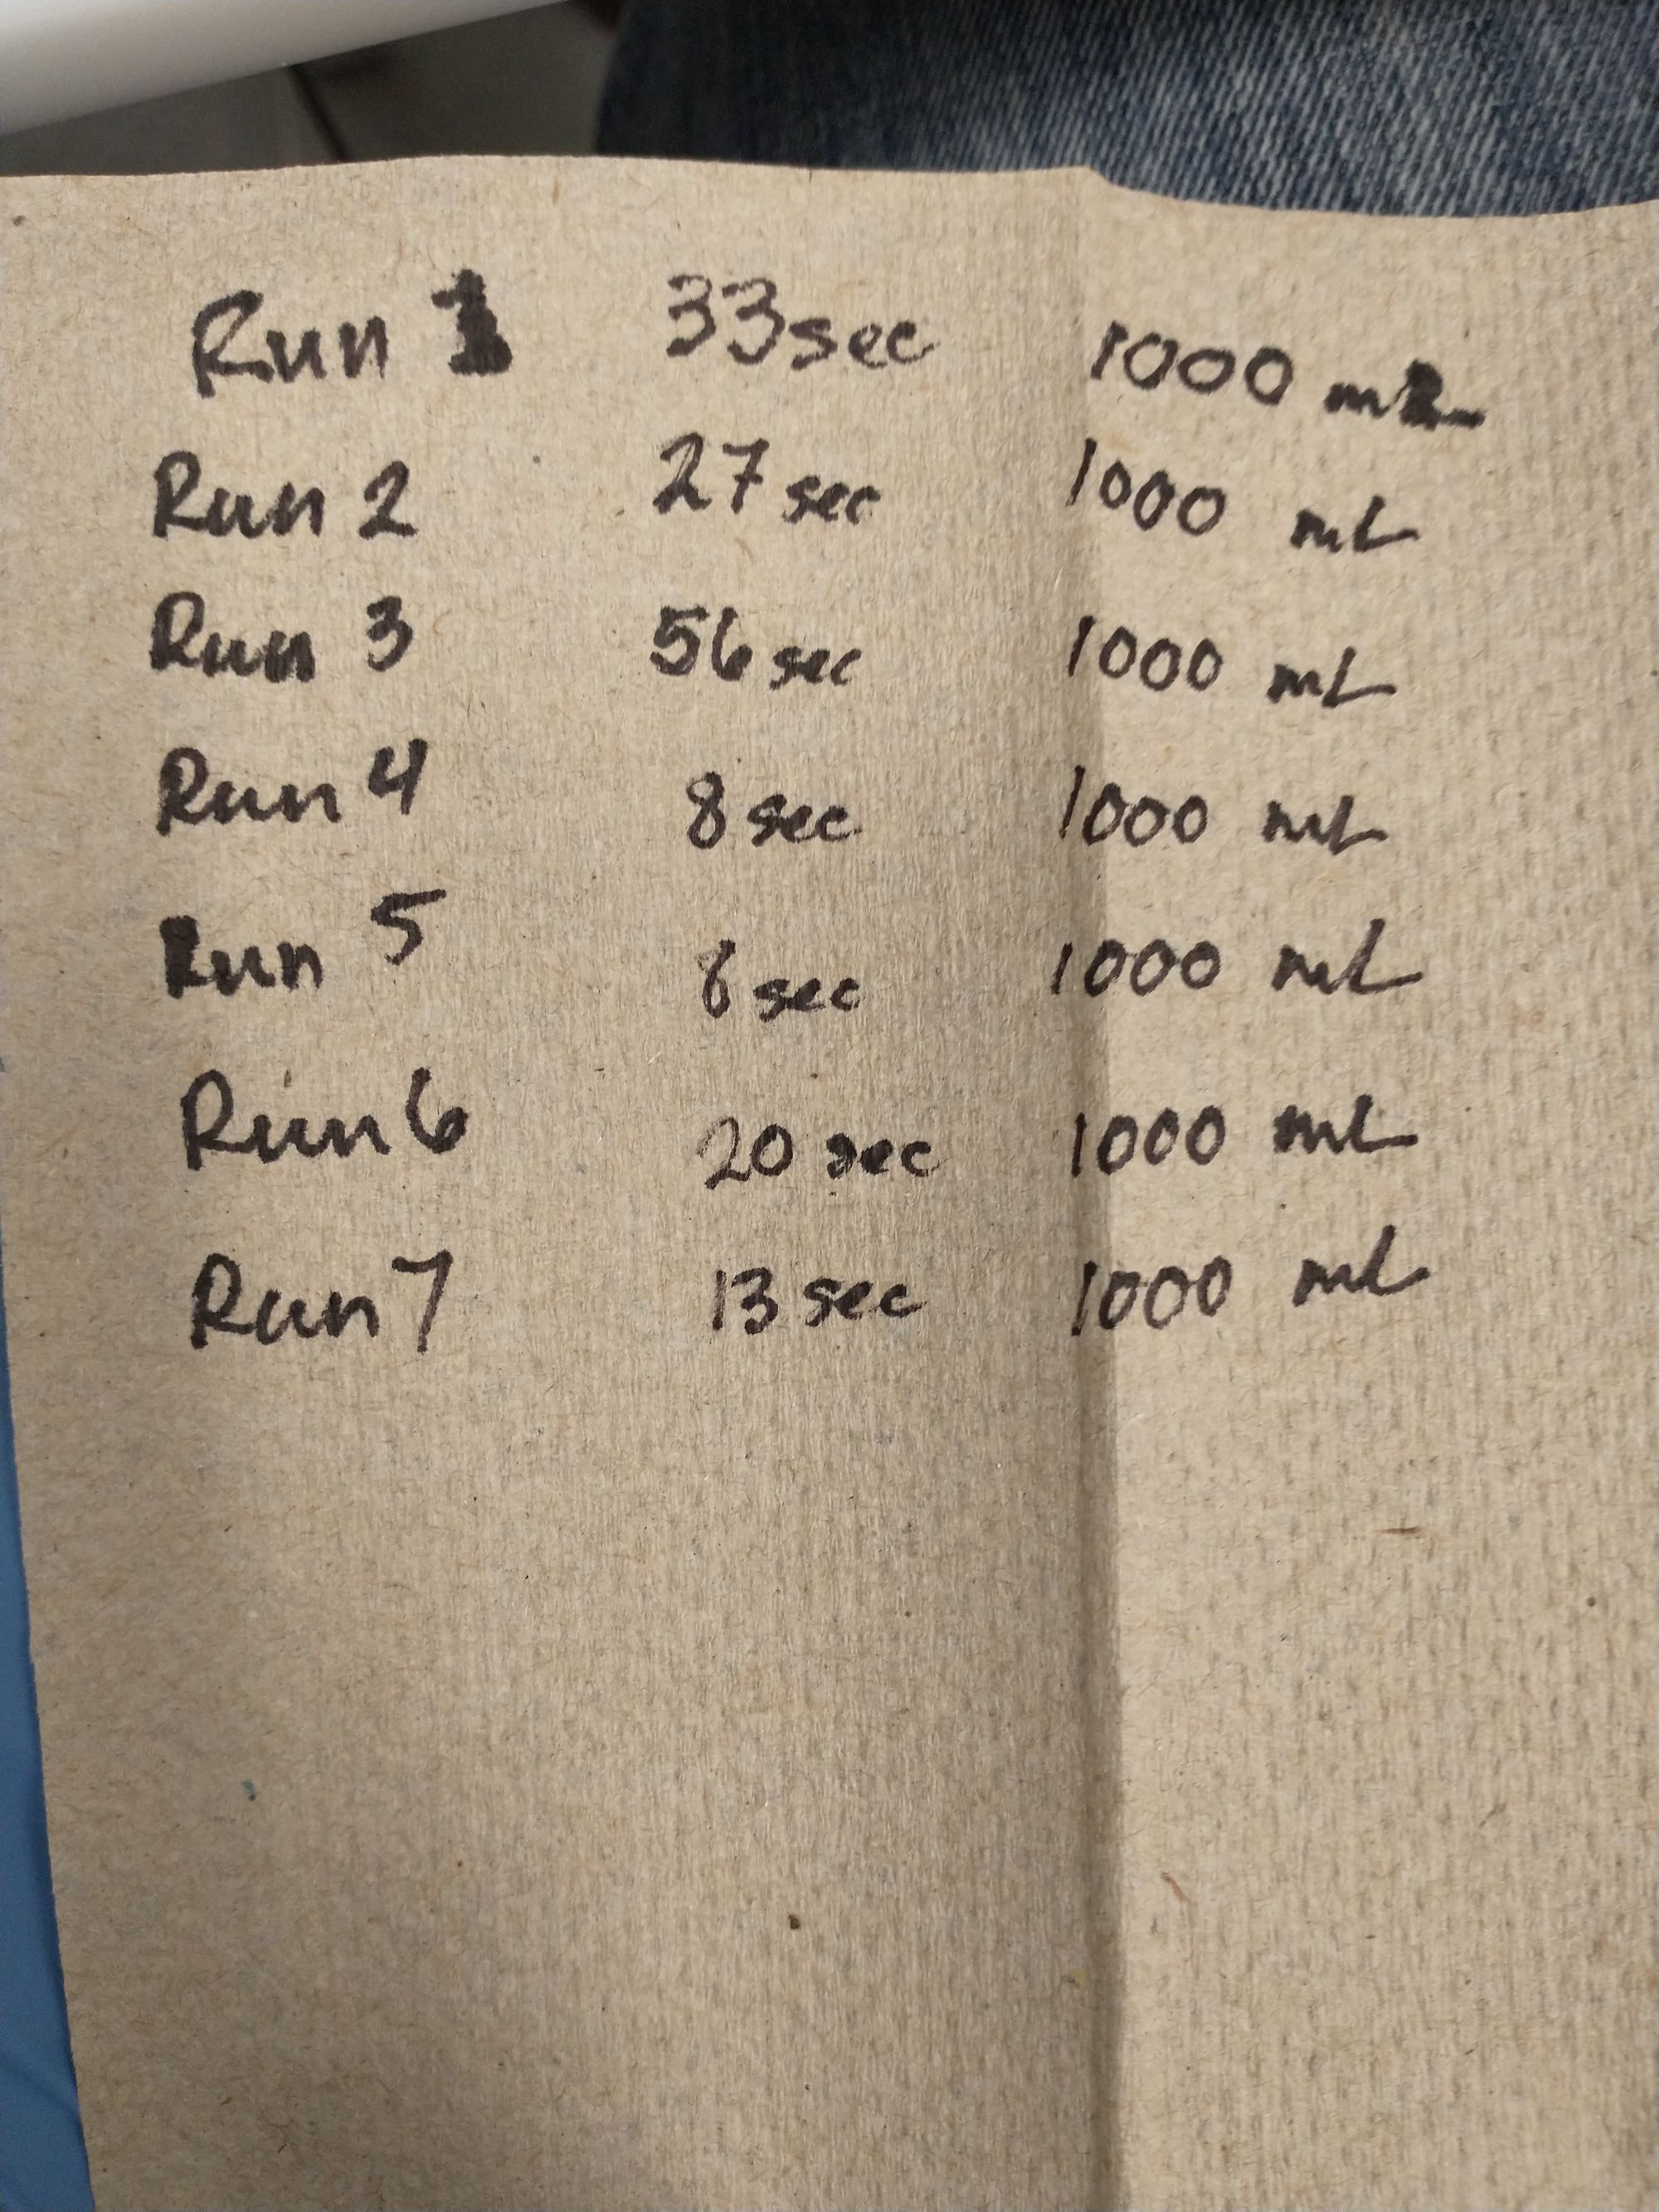 Run 1 33sec 1000 mL
Run 2 27 sec 1000 mL
Run 3 56 sec 1000 mL
Run 4 8 sec 1000 mL
Run 5 6 sec 1000 mL
Run 6 20 sec 1000 mL
Run 7 13 sec 1000 mL